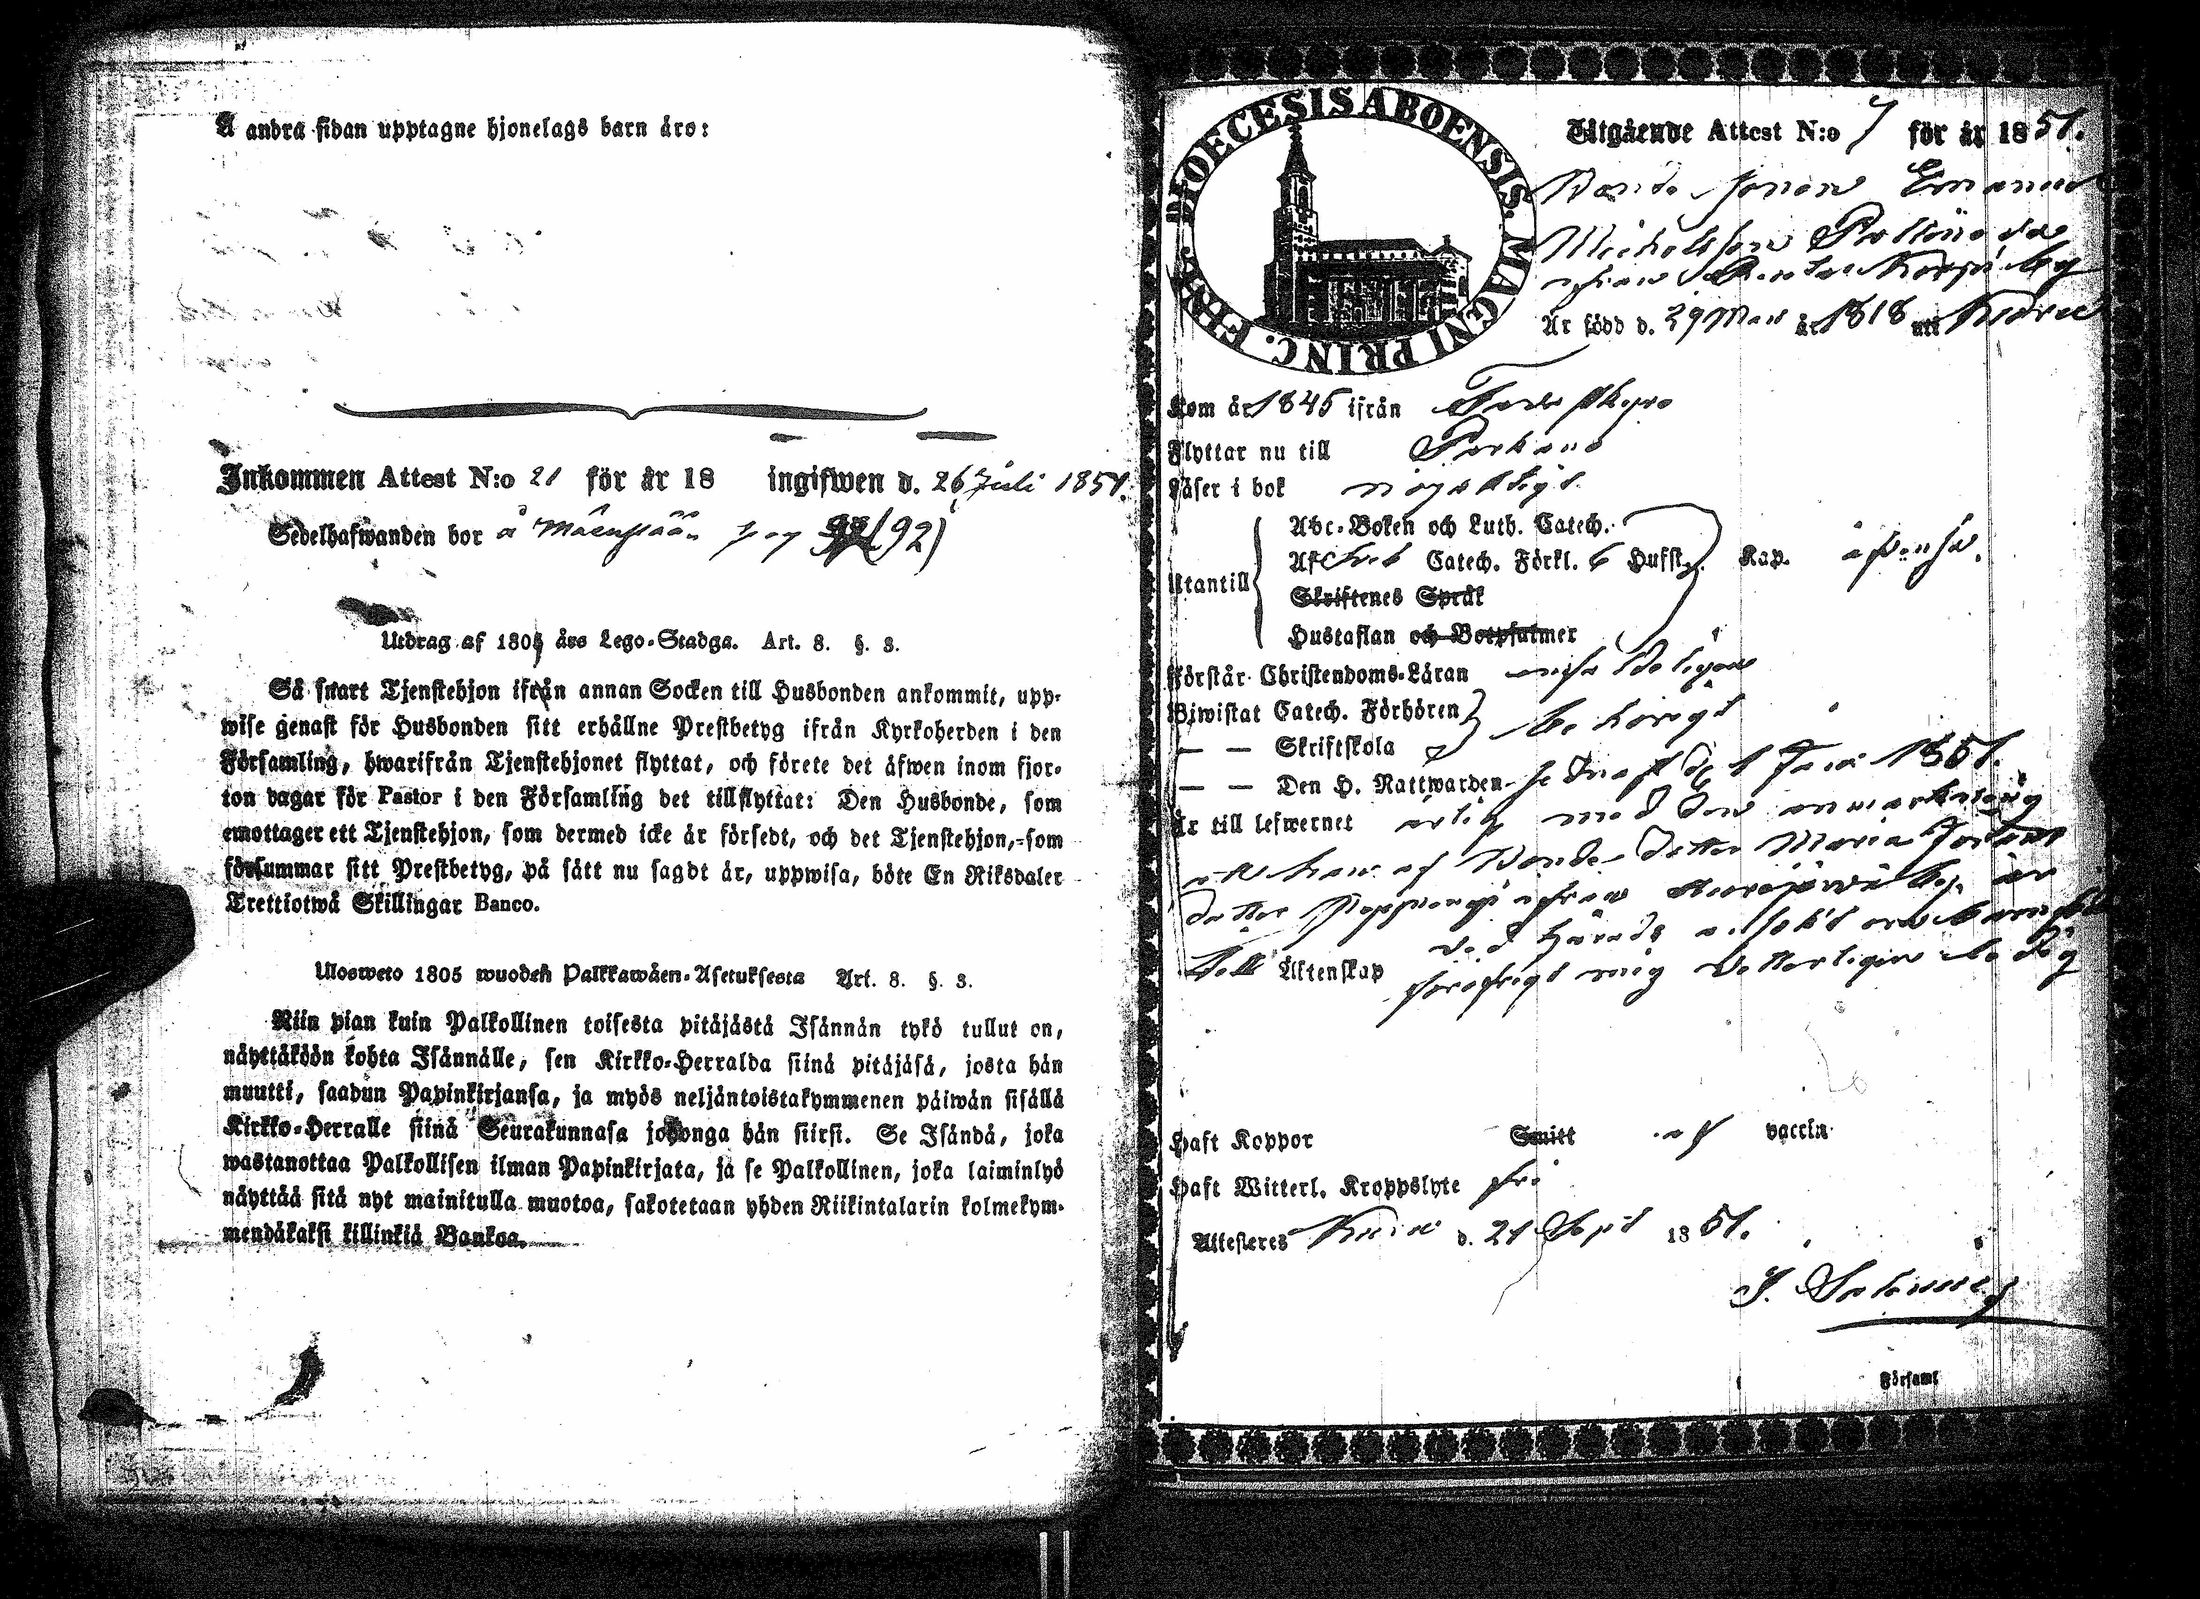 Å andra sidan upptagne hjonelags barn äro:
Inkommen Attest N:o 21 för år 18 ingifwen d. 26 Juli 1851.
Sedelhafwanden bor å (92)
Utdrag af 1805 års Lego-Stadga. Art. 8. §. 3.
Så snart Tjenstehjon ifrån annan Socken till Husbonden ankommit, upp-
wise genast för Husbonden sitt erhållne Prestbetyg ifrån Kyrkoherden i den
Församling, hwarifrån Tjenstehjonet flyttat, och förete det äfwen inom fjor-
ton dagar för Pastor i den Församling det tillflyttat: Den Husbonde, som
emottager ett Tjenstehjon, som dermed icke är försedt, och det Tjenstehjon, som
försummar sitt Prestbetyg, på sätt nu sagdt är, uppwisa, böte En Riksdaler
Trettiotwå Skillingar Banco.
Ulosweto 1805 wuoden Palkkawäen-Asetuksesta Art. 8. §. 3.
Niin pian kuin Palkollinen toisesta pitäjästä Isännän tykö tullut on,
näyttäköön kohta Isännälle, sen Kirkko-Herralda siinä pitäjäsä, josta hän
muutti, saadun Papinkirjansa, ja myös neljäntoistakymmenen päiwän sisällä
Kirkko-Herralle siinä Seurakunnasa johonga hän siirsi. Se Isändä, joka
wastanottaa Palkollisen ilman Papinkirjata, ja se Palkollinen, joka laiminlyö
näyttää sitä nyt mainitulla muotoa, sakotetaan yhden Riikintalarin kolmekym-
mendäkaksi killinkiä Bankoa.
DIOECESIS ABOENSIS. MAGNI PRINC. FINL.
Utgående Attest N:o 7 för år 1851.
Bonde Johan Emanuel
Michelsson
ifrån by
Är född d. 29 Maii år 1818 uti
Kom år 1845 ifrån Tavastkyro
Flyttar nu till Parkano
Läser i bok nöjaktigt
Abc-Boken och Luth. Catech.
Utantill Af Catech. Förkl. 6 Hufst. Kap.
Skriftenes Språk
Hustaflan och Botpsalmer
Förstår Christendoms-Läran
Biwistat Catech. Förhören behörigt
— — Skriftskola
— — Den H. Nattwarden sednast d. 1851.
Är till lefwernet ärlig med den anmärkning
att han af Bonde-dotter Maria
dotter ifrån by är
wid Härads
Till Äktenskap
Haft Koppor Smitt vaccin
Haft Witterl. Kroppslyte fri
Attesteres d. 21 Sept 1851.
Församl